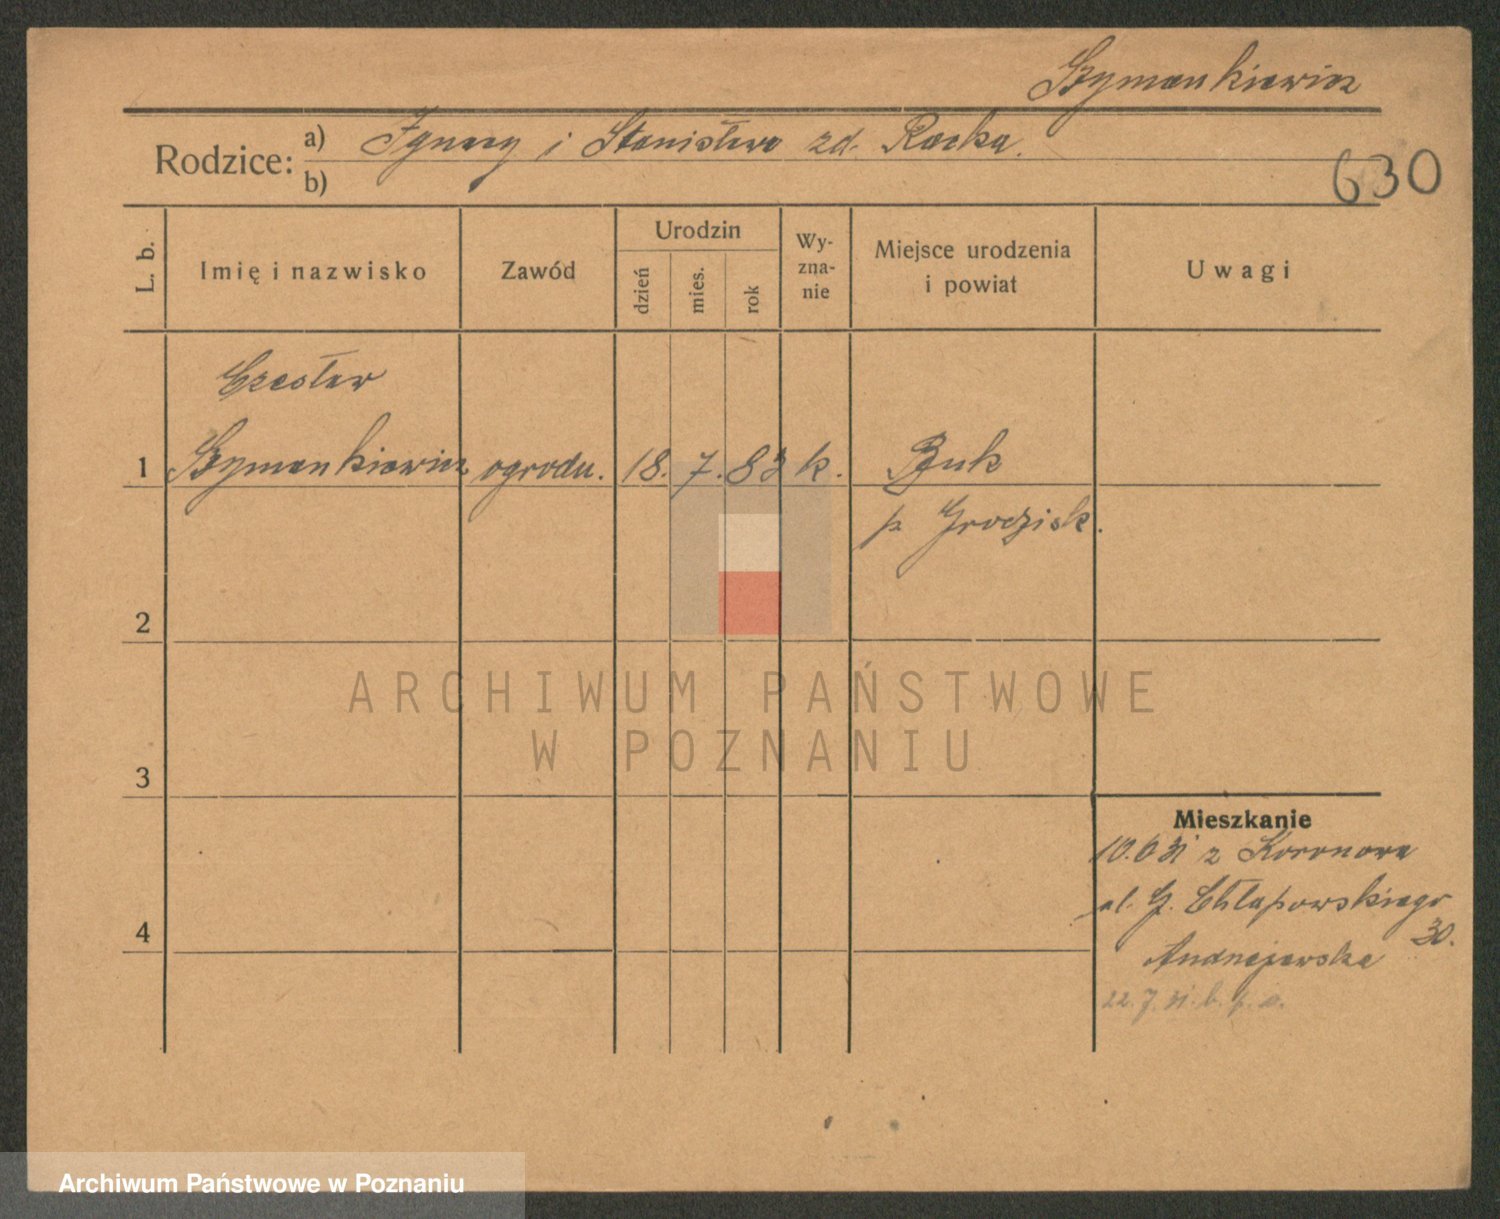 Szymankiewicz
Rodzice: a) Ignacy i Stanisława zd. Racka.
b)
630
L. b.
Imię i nazwisko
Zawód
Urodzin
dzień
mies.
rok
Wy-
zna-
nie
Miejsce urodzenia
i powiat
Uwagi
Czesław
1 Szymankiewicz ogrodn. 18. 7. 83 k. Buk
p. Grodzisk.
2
ARCHIWUM PAŃSTWOWE
W POZNANIU
3
Mieszkanie
10.6 31 z Koronowa
ul. G. Chłapowskiego
30.
4
Andrzejewska
22.7.31. b. p. o.
Archiwum Państwowe w Poznaniu